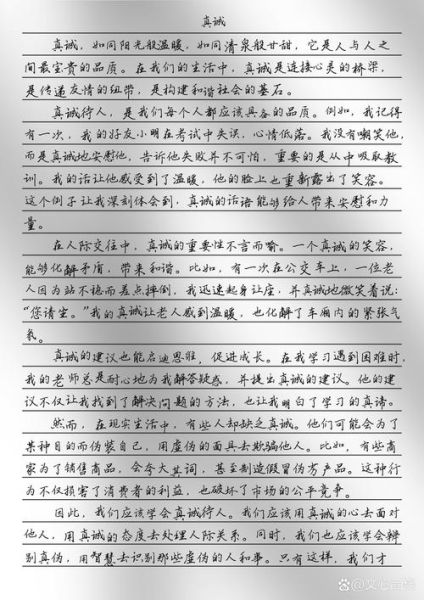 真诚
真诚，如同阳光般温暖，如同清泉般甘甜，它是人与人之
间最宝贵的品质。在我们的生活中，真诚是连接心灵的桥梁，
是传递友情的纽带，是构建和谐社会的基石。
真诚待人，是我们每个人都应该具备的品质。例如，我记得
有一次，我的好友小明在考试中失误，心情低落。我没有嘲笑他，
而是真诚地安慰他，告诉他失败并不可怕，重要的是从中吸取教
训。我的话让他感受到了温暖，他的脸上也重新露出了笑容。
这个例子让我深刻体会到，真诚的话语能够给人带来安慰和力
量。
在人际交往中，真诚的重要性不言而喻。一个真诚的笑容，
能够化解矛盾，带来和谐。比如，有一次在公交车上，一位老
人因为站不稳而差点摔倒，我迅速起身让座，并真诚地微笑着说：
“您请坐。”我的真诚让老人感到温暖，也化解了车厢内的紧张气
氛。
真诚的建议也能启迪思维，促进成长。在我学习遇到困难时，
我的老师总是耐心地为我解答疑惑，并提出真诚的建议。他的建
议不仅让我找到了解决问题的方法，也让我明白了学习的真谛。
然而，在现实生活中，有些人却缺乏真诚。他们可能会为了
某种目的而伪装自己，用虚伪的面具去欺骗他人。比如，有些商
家为了销售商品，会夸大其词，甚至制造假冒伪劣产品。这种行
为不仅损害了消费者的利益，也破坏了市场的公平竞争。
因此，我们应该学会真诚待人。我们应该用真诚的心去面对
他人，用真诚的态度去处理人际关系。同时，我们也应该学会辨
别真伪，用智慧去识别那些虚伪的人和事。只有这样，我们才